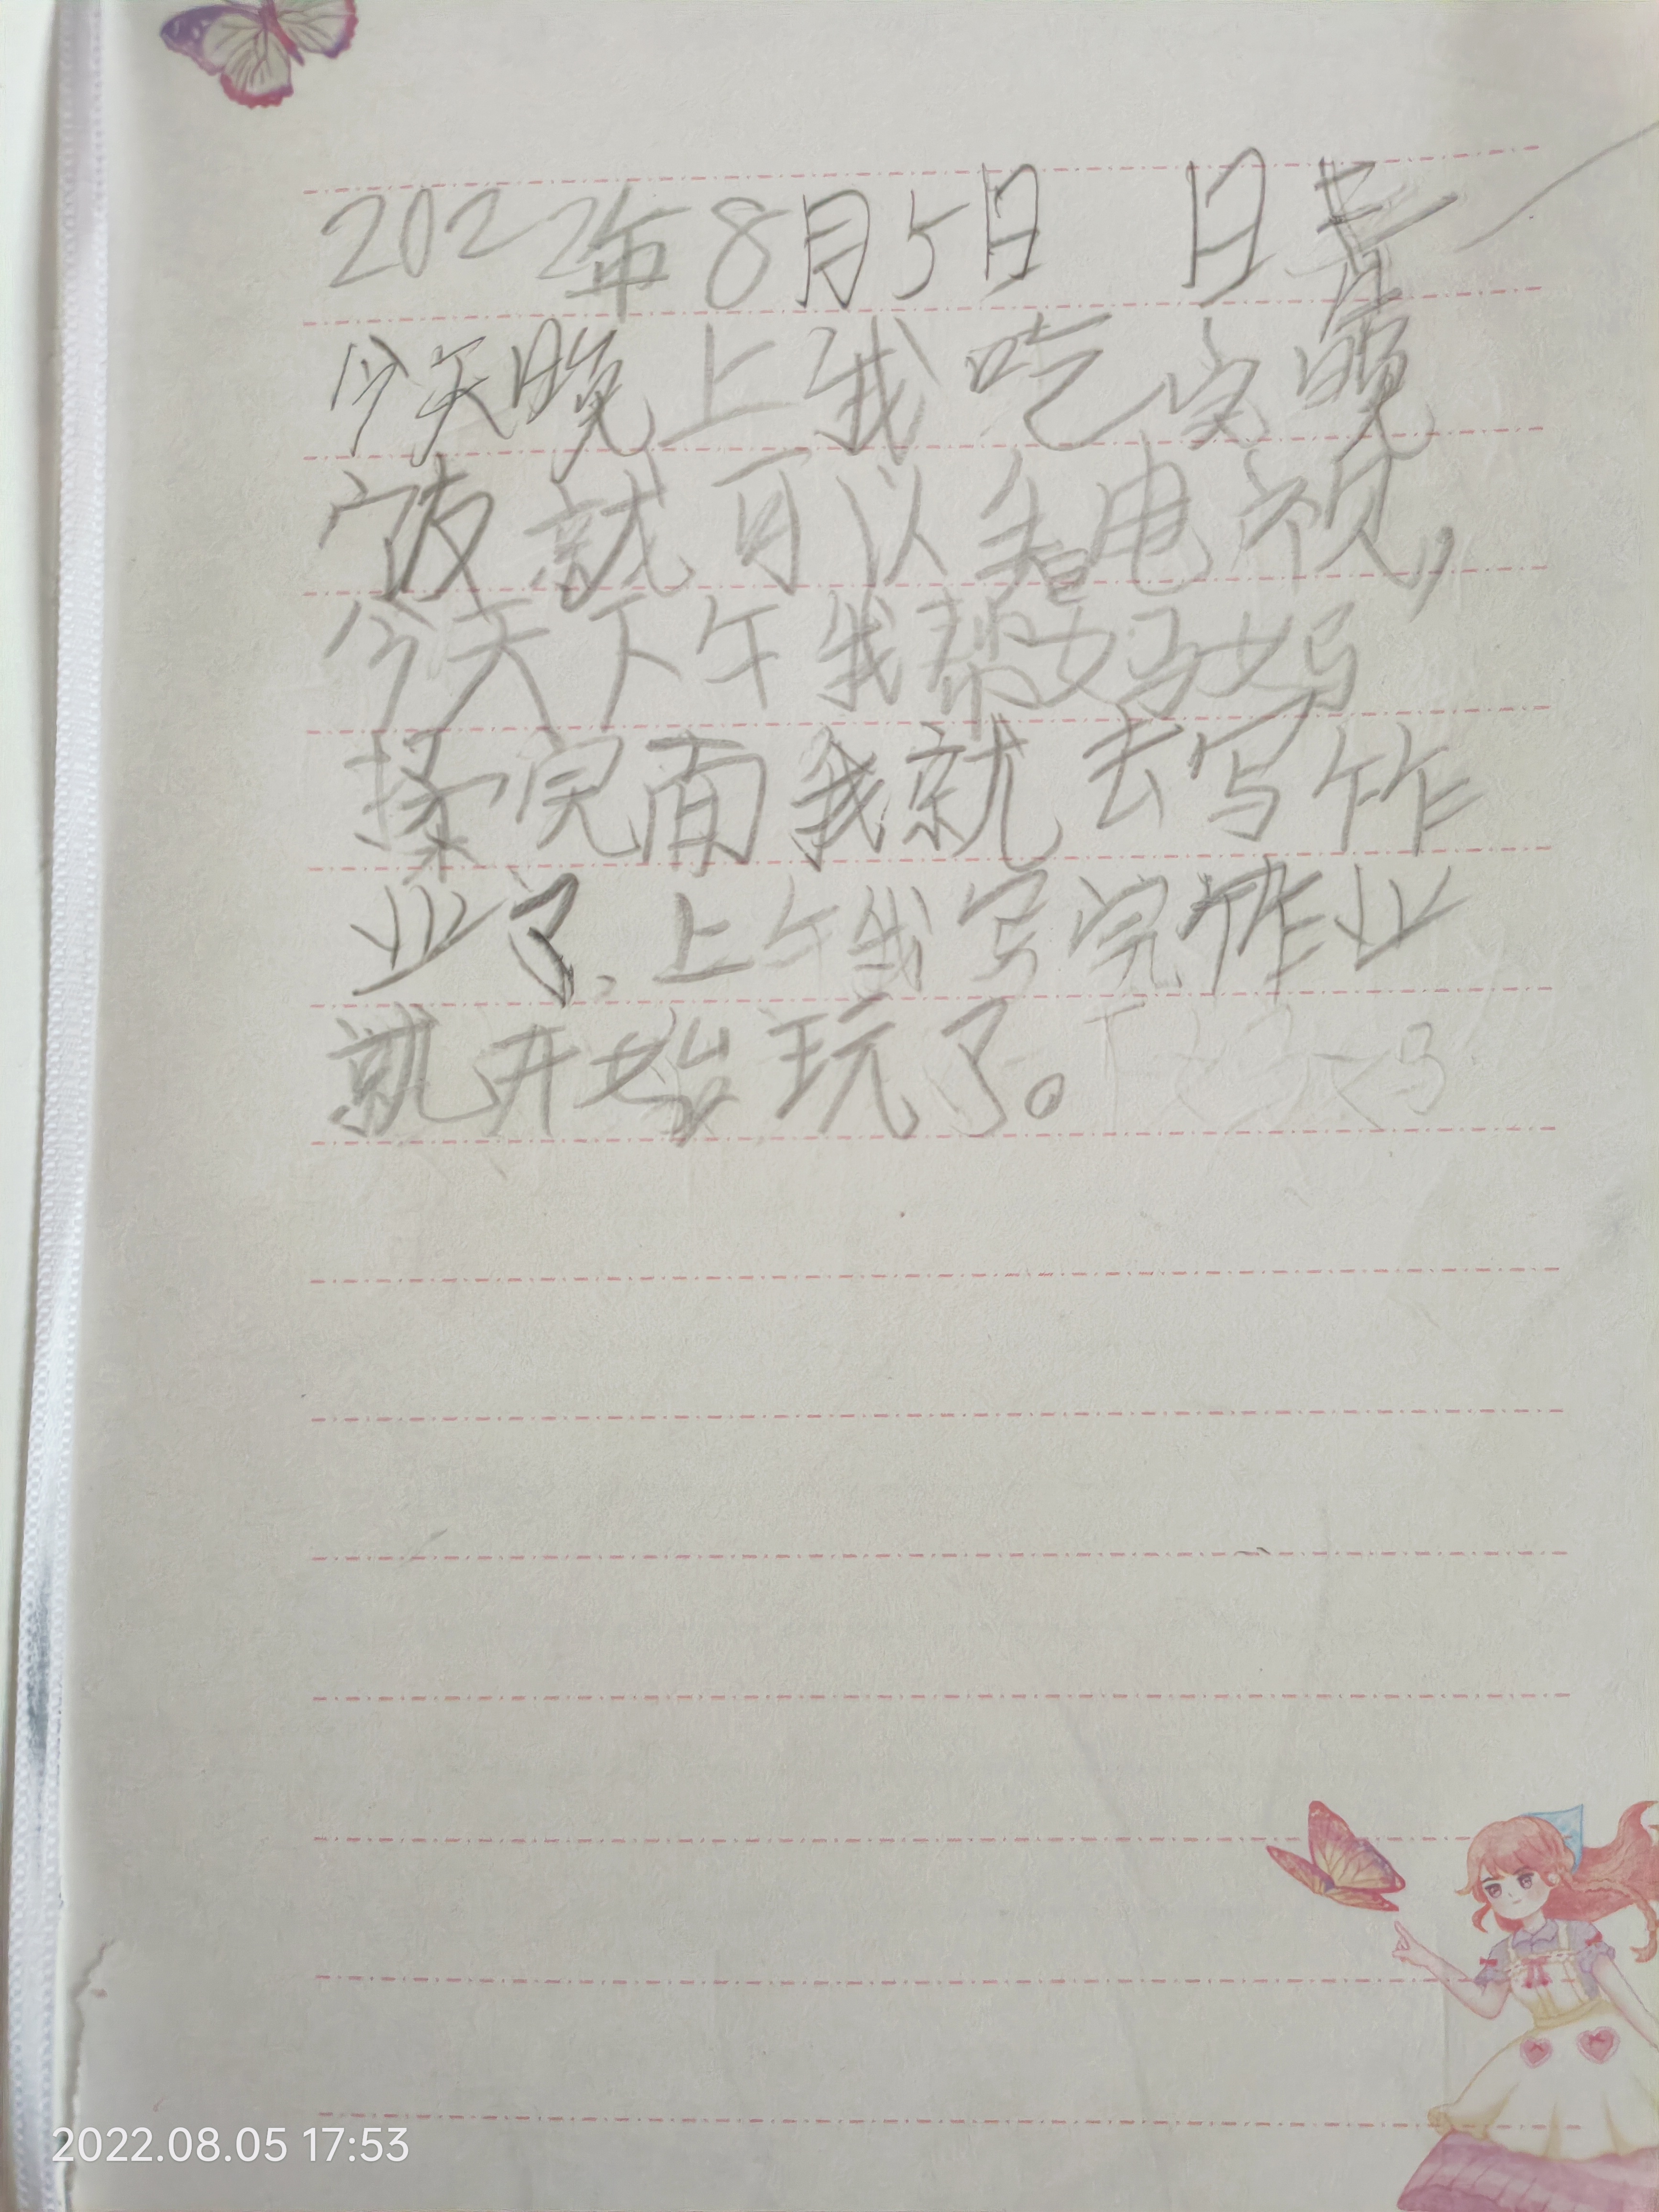 2022年8月5日 日
今天晚上我吃完晚
饭就可以看电视,
今天下午我帮妈妈
揉完面我就去写作
业了、上午我写完作业
就开始玩了。
2022.08.05 17:53